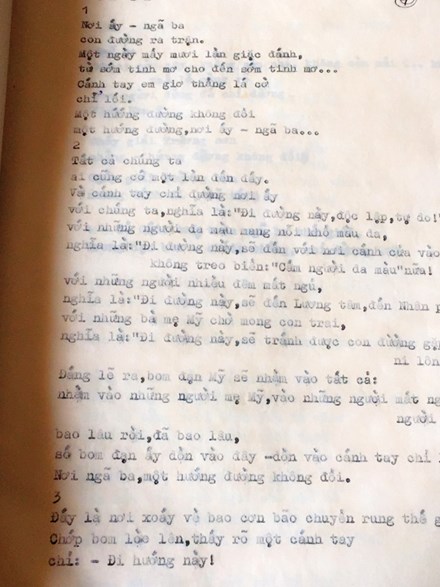 1
Nơi ấy - ngã ba
con đường ra trận.
Một ngày mấy mươi lần giặc đánh,
từ sớm tinh mơ cho đến sớm tinh mơ...
Cánh tay em giơ thẳng lá cờ
chỉ lối.
Một hướng đường không đổi
một hướng đường,nơi ấy - ngã ba...
2
Tất cả chúng ta
ai cũng có một lần đến đấy.
Và cánh tay chỉ đường nơi ấy
với chúng ta,nghĩa là:"Đi đường này,độc lập,tự do!"
với những người da màu mang nỗi khổ màu da,
nghĩa là:"Đi đường này,sẽ đến với nơi cánh cửa vào
không treo biển:"Cấm người da màu"nữa!
với những người nhiều đêm mất ngủ,
nghĩa là:"Đi đường này,sẽ đến Lương tâm,đến Nhân
với những bà mẹ Mỹ chờ mong con trai,
nghĩa là:"Đi đường này,sẽ tránh được con đường
ni lôn
Đáng lẽ ra,bom đạn Mỹ sẽ nhằm vào tất cả:
nhằm vào những người mẹ Mỹ,vào những người mất
người
bao lâu rồi,đã bao lâu,
số bom đạn ấy dồn vào đây -dồn vào cánh tay chỉ
Nơi ngã ba,một hướng đường không đổi.
3
Đấy là nơi xoáy về bao cơn bão chuyển rung thế
Chớp bom lóe lên,thấy rõ một cánh tay
chỉ: - Đi hướng này!